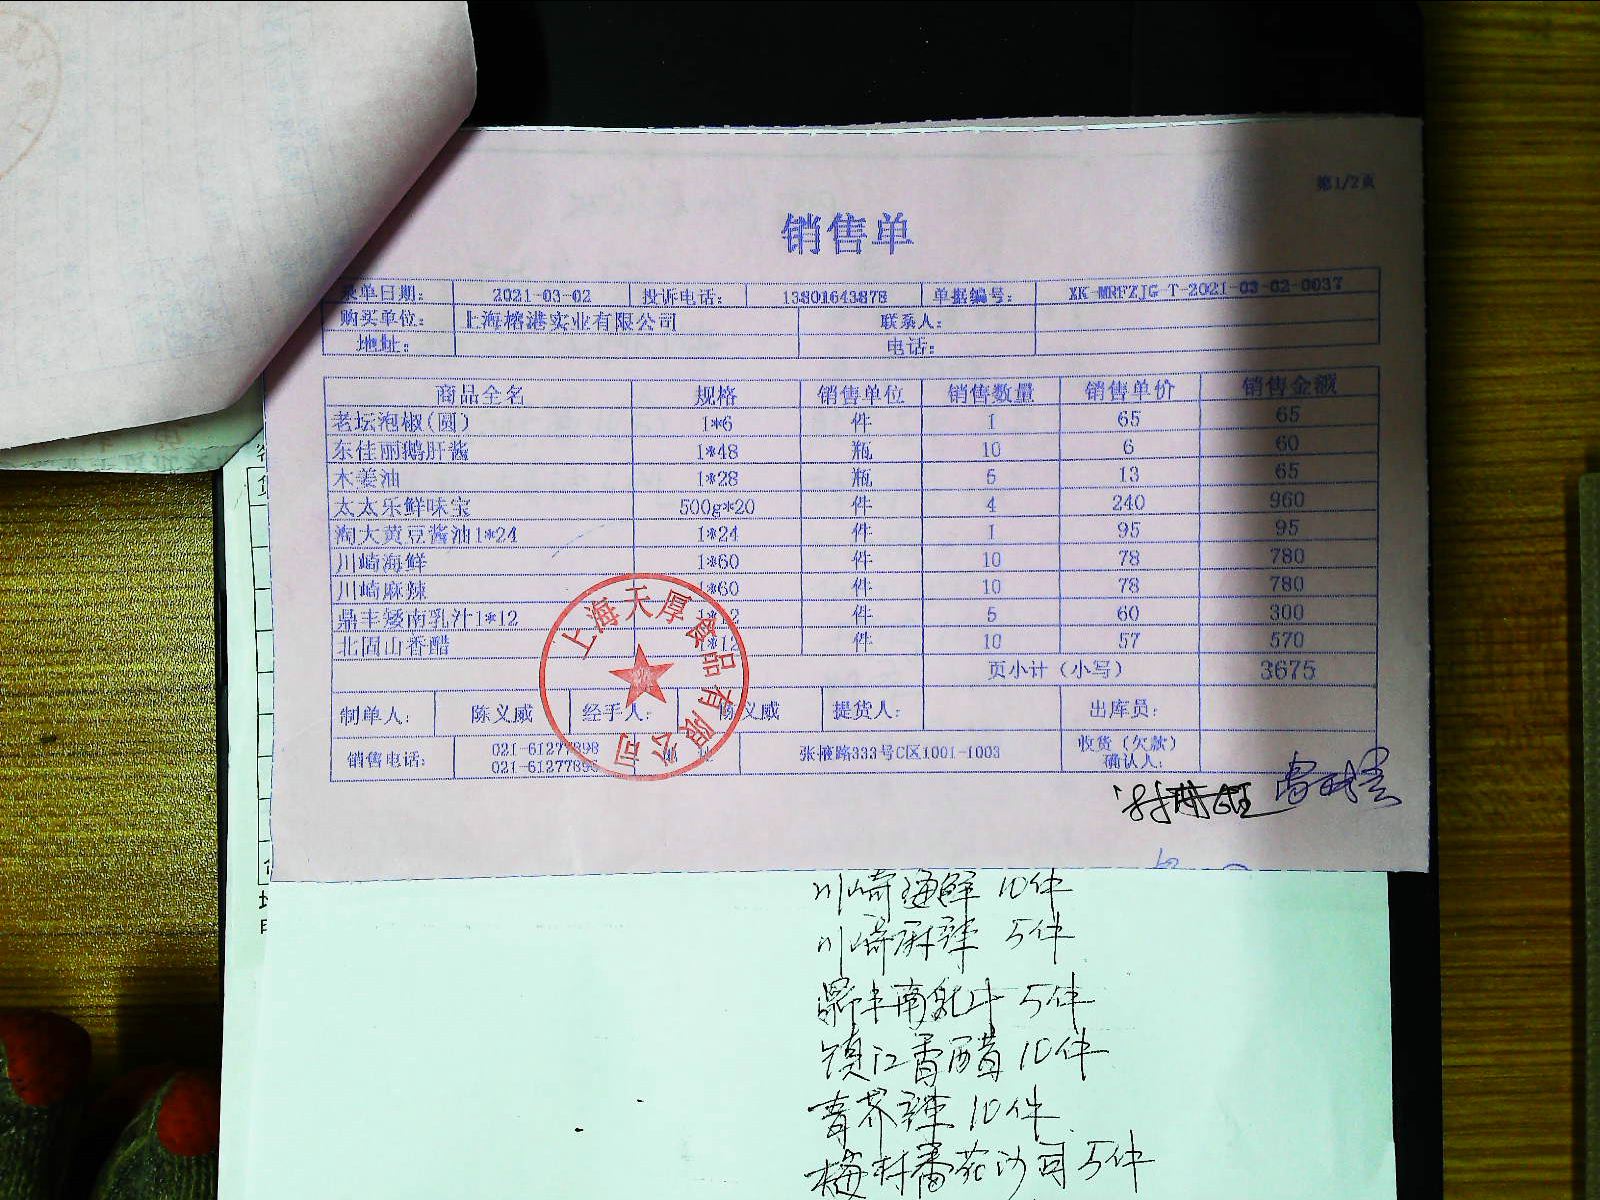 第1/2页
销售单
录单日期： 2021-03-02 投诉电话： 13801643878 单据编号： XK-MRFZJG-T-2021-03-02-0037
购买单位： 上海榕港实业有限公司 联系人：
地址： 电话：
商品全名 规格 销售单位 销售数量 销售单价 销售金额
老坛泡椒(圆) 1*6 件 1 65 65
东佳丽鹅肝酱 1*48 瓶 10 6 60
木姜油 1*28 瓶 5 13 65
太太乐鲜味宝 500g*20 件 4 240 960
淘大黄豆酱油1*24 1*24 件 1 95 95
川崎海鲜 1*60 件 10 78 780
川崎麻辣 1*60 件 10 78 780
鼎丰矮南乳汁1*12 1*12 件 5 60 300
北固山香醋 1*12 件 10 57 570
页小计（小写） 3675
制单人： 陈义威 经手人： 陈义威 提货人： 出库员：
销售电话： 021-61277898 张掖路333号C区1001-1003 收货（欠款）
021-6127789 确认人：
上海天厚食品有限公司
川崎海鲜 10件
川崎麻辣 5件
鼎丰南乳汁 5件
镇江香醋 10件
青芥辣 10件
梅林番茄沙司 5件